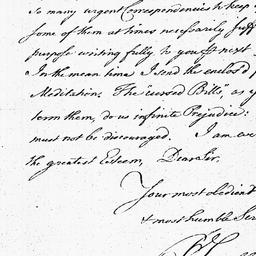 So many urgent Correspondencies to keep
some of them at times necessarily suff
purpose writing fully to you p next
In the mean time I send the enclos'd p
Meditation. The "cursed Bills," as y
term them, do us infinite Prejudice:
must not be discouraged. I am eve
the greatest Esteem, Dear Sir,
Your most obedient
& most humble Ser